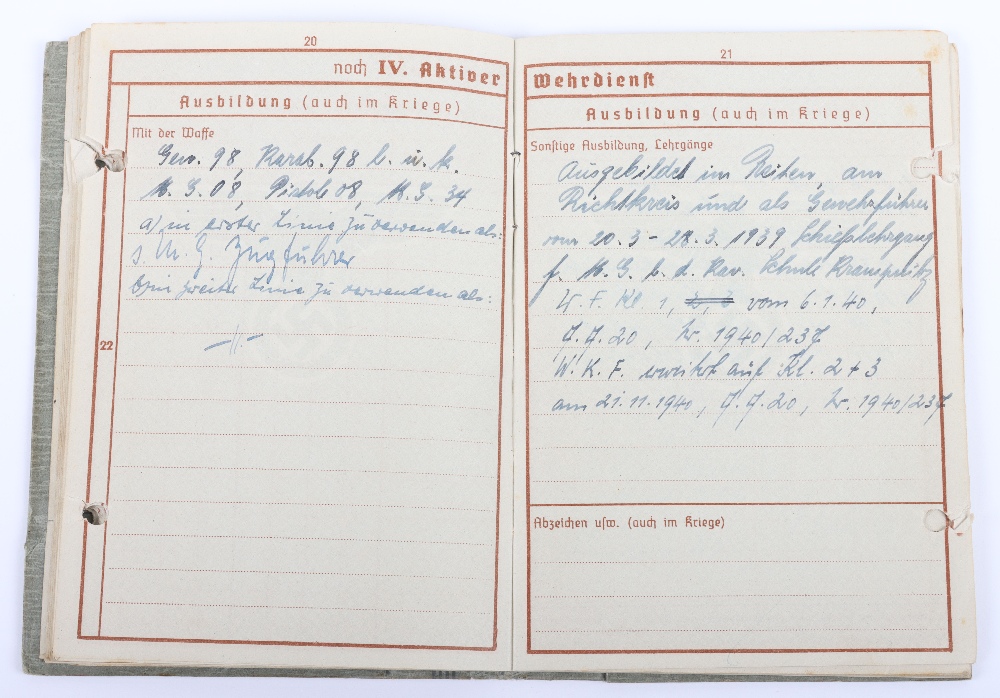 20
noch IV. Aktiver
Ausbildung (auch im Kriege)
Mit der Waffe
Gew. 98, Karab. 98 b. u. k.
M. G. 08, Pistole 08, M. G. 34
a) in erster Linie zu verwenden als:
s. M. G. Zugführer
b) in zweiter Linie zu verwenden als:
—//—
22
21
Wehrdienst
Ausbildung (auch im Kriege)
Sonstige Ausbildung, Lehrgänge
Ausgebildet im Reiten, am
Richtkreis und als Gewehrführer
vom 20.3 - 28.3. 1939 Schießlehrgang
f. M. G. b. d. Kav. Schule Krampnitz
W. F. Kl. 1, vom 6.1.40,
J. J. 20, Nr. 1940/237
W. K. F. erweitert auf Kl. 2 + 3
am 21.11.1940, J. J. 20, Nr. 1940/237
Abzeichen usw. (auch im Kriege)